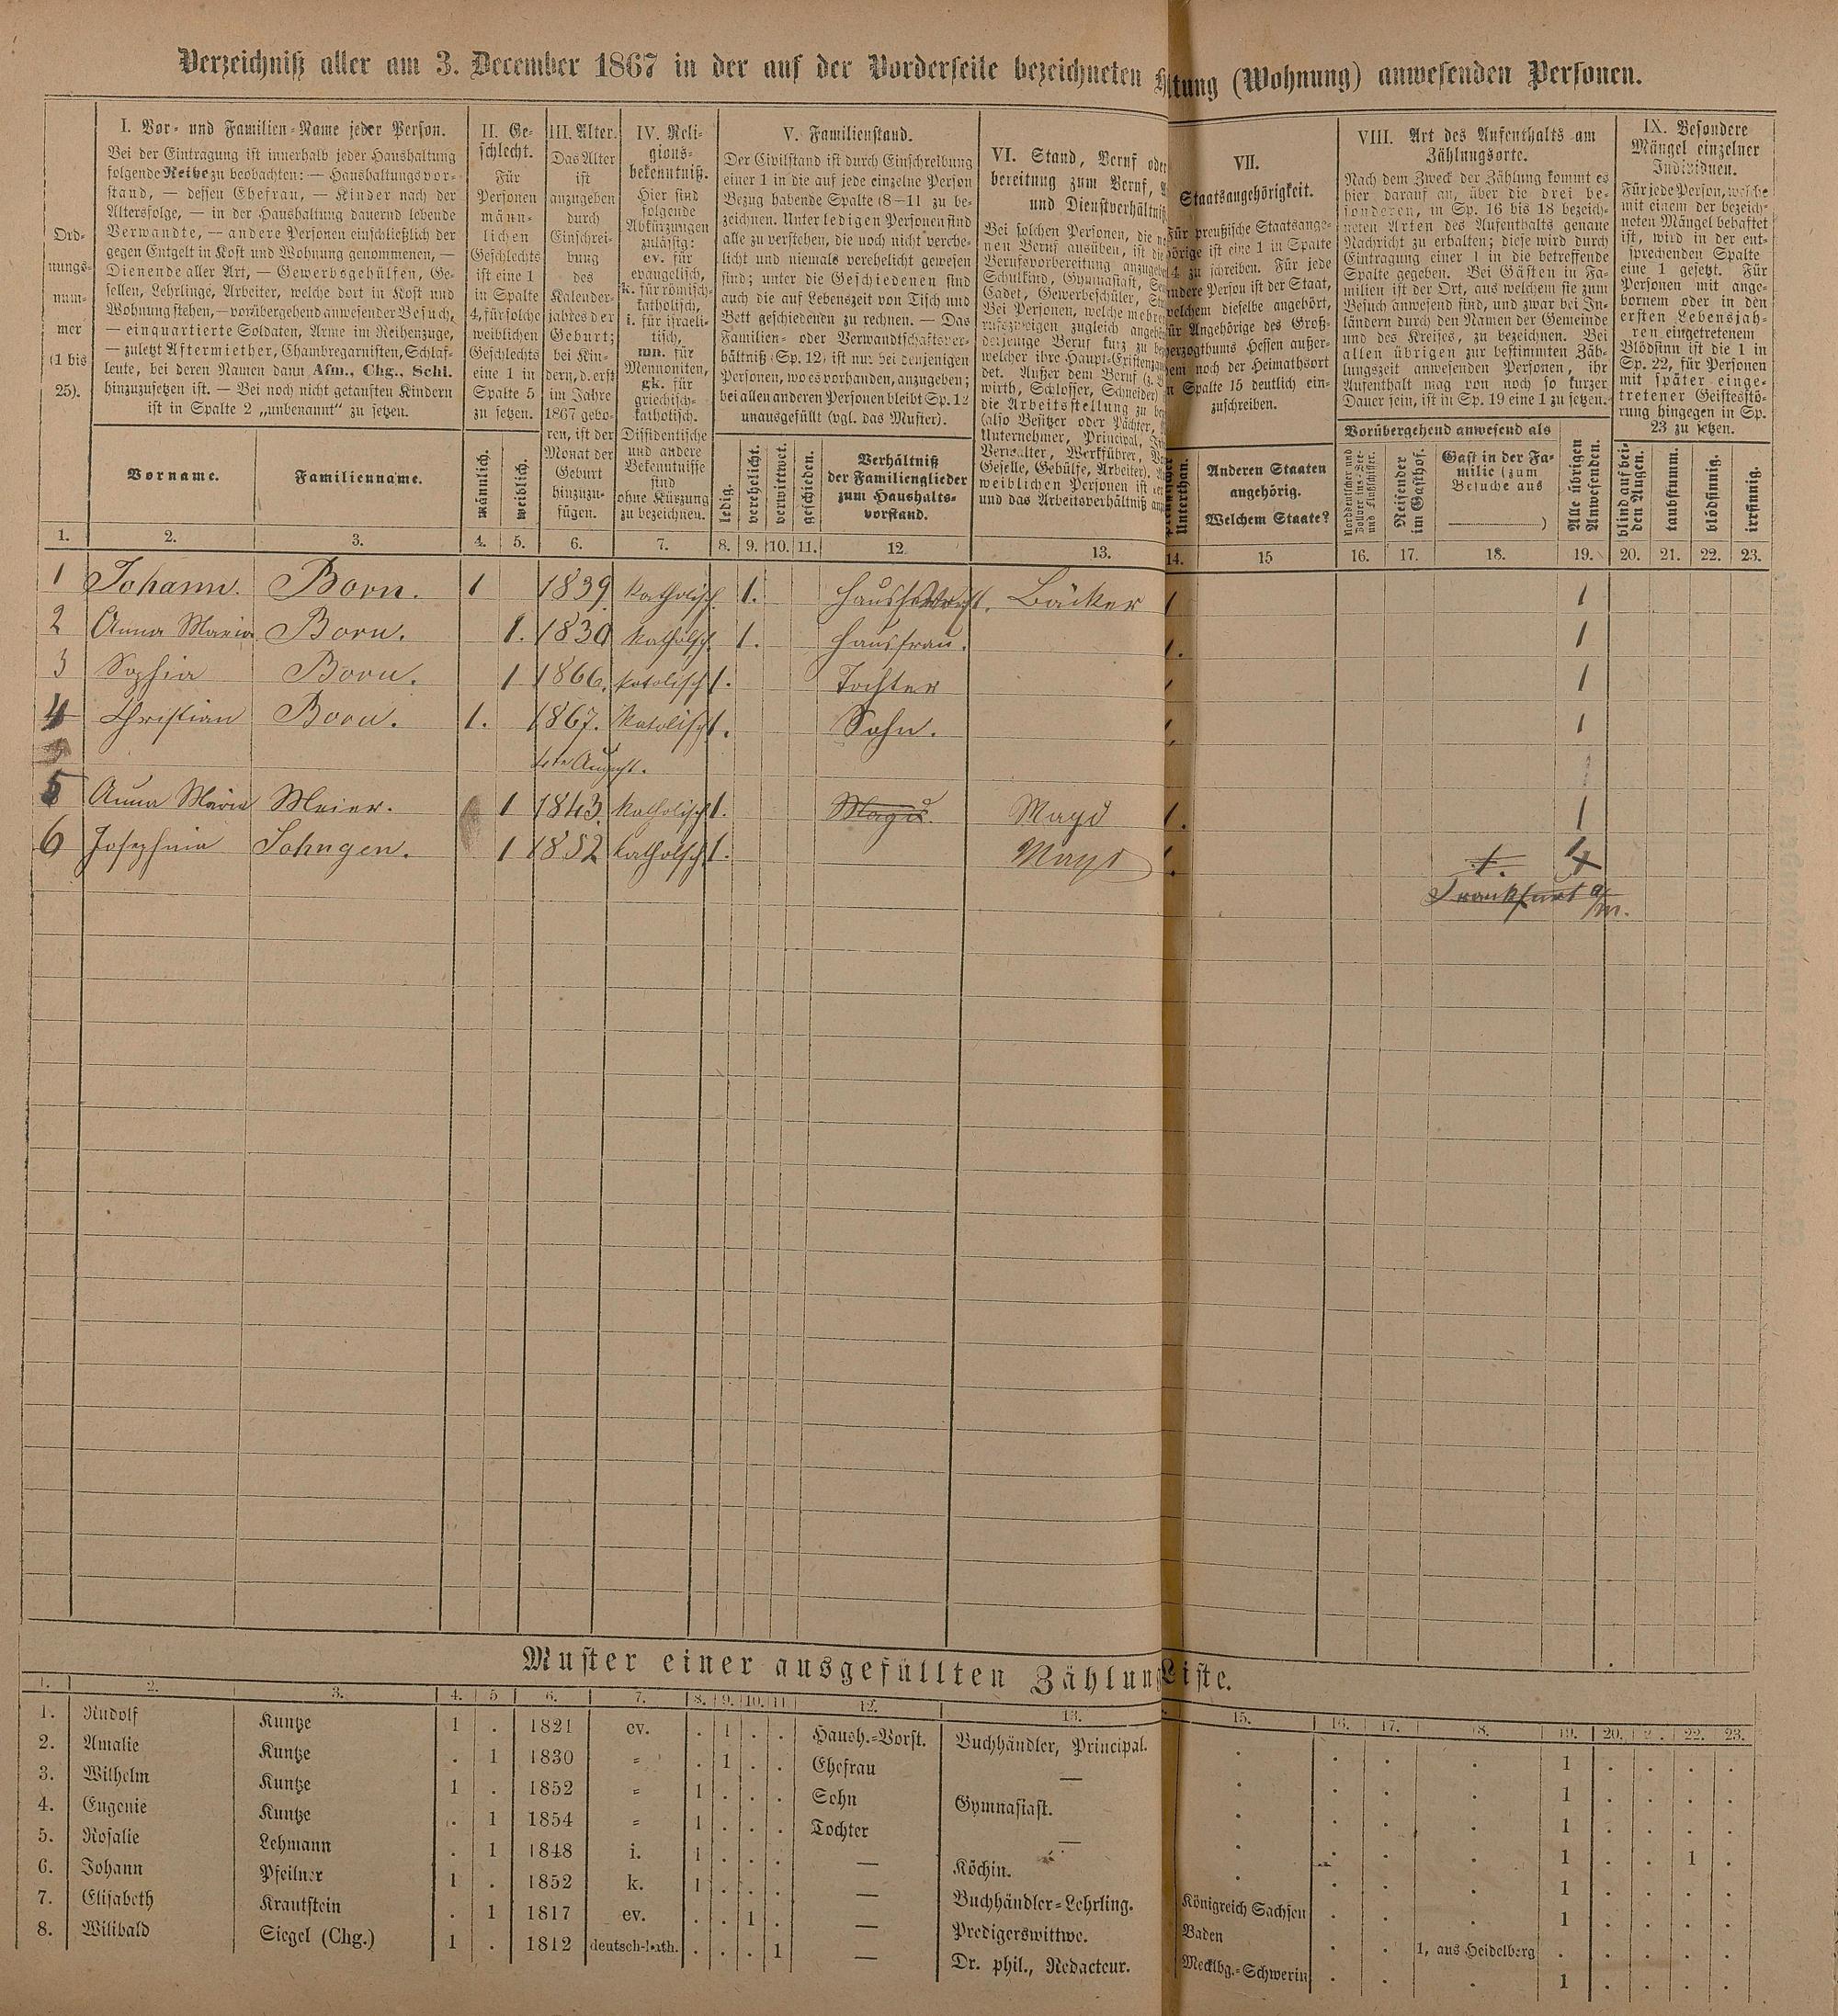 Verzeichniß aller am 3. December 1867 in der auf der Vorderseite bezeichneten
tung (Wohnung) anwesenden Personen.
Ord-
nungs-
num-
mer
(1 bis
25).
I. Vor- und Familien-Name jeder Person.
Bei der Eintragung ist innerhalb jeder Haushaltung
folgende Reihe zu beobachten: — Haushaltungsvor-
stand, — dessen Ehefrau, — Kinder nach der
Altersfolge, — in der Haushaltung dauernd lebende
Verwandte, — andere Personen einschließlich der
gegen Entgelt in Kost und Wohnung genommenen, —
Dienende aller Art, — Gewerbsgehülfen, Ge-
sellen, Lehrlinge, Arbeiter, welche dort in Kost und
Wohnung stehen, — vorübergehend anwesender Besuch,
— einquartierte Soldaten, Arme im Reihenzuge,
— zuletzt Aftermiether, Chambregarnisten, Schlaf-
leute, bei deren Namen dann Afm., Chg., Schl.
hinzuzusetzen ist. — Bei noch nicht getauften Kindern
ist in Spalte 2 „unbenannt“ zu setzen.
Vorname.
Familienname.
II. Ge-
schlecht.
Für
Personen
männ-
lichen
Geschlechts
ist eine 1
in Spalte
4, für solche
weiblichen
Geschlechts
eine 1 in
Spalte 5
zu setzen.
männlich.
weiblich.
III. Alter.
Das Alter
ist
anzugeben
durch
Einschrei-
bung
des
Kalender-
jahres der
Geburt;
bei Kin-
dern, d. erst
im Jahre
1867 gebo-
ren, ist der
Monat der
Geburt
hinzuzu-
fügen.
IV. Reli-
gions-
bekenntniß.
Hier sind
folgende
Abkürzungen
zulässig:
ev. für
evangelisch,
k. für römisch-
katholisch,
i. für israeli-
tisch,
mn. für
Mennoniten,
gk. für
griechisch-
katholisch.
Dissidentische
und andere
Bekenntnisse
sind
ohne Kürzung
zu bezeichnen.
V. Familienstand.
Der Civilstand ist durch Einschreibung
einer 1 in die auf jede einzelne Person
Bezug habende Spalte (8—11 zu be-
zeichnen. Unter ledigen Personen sind
alle zu verstehen, die noch nicht verehe-
licht und niemals verehelicht gewesen
sind; unter die Geschiedenen sind
auch die auf Lebenszeit von Tisch und
Bett geschiedenen zu rechnen. — Das
Familien- oder Verwandtschaftsver-
hältniß (Sp. 12) ist nur bei denjenigen
Personen, wo es vorhanden, anzugeben;
bei allen anderen Personen bleibt Sp. 12
unausgefüllt (vgl. das Muster).
ledig.
verehelicht.
verwittwet.
geschieden.
Verhältniß
der Familienglieder
zum Haushalts-
vorstand.
VI. Stand, Beruf oder
bereitung zum Beruf,
und Dienstverhältniß
Bei solchen Personen, die
nen Beruf ausüben, ist die
Berufsvorbereitung
Schulkind, Gymnasiast,
Cadet, Gewerbeschüler,
Bei Personen, welche
zugleich
derjenige Beruf kurz zu
welcher ihre
det. Außer dem Beruf
wirth, Schlosser, Schneider)
die Arbeitsstellung zu
(also Besitzer oder Pächter,
Unternehmer, Principal,
Verwalter, Werkführer,
Geselle, Gehülfe, Arbeiter).
weiblichen Personen ist
und das Arbeitsverhältniß
VII.
Staatsangehörigkeit.
Für preußische Staatsange-
hörige ist eine 1 in Spalte
14 zu schreiben. Für jede
andere Person ist der Staat,
welchem dieselbe angehört,
für Angehörige des Groß-
herzogthums Hessen außer-
dem noch der Heimathsort
in Spalte 15 deutlich ein-
zuschreiben.
Unterthan.
Anderen Staaten
angehörig.
Welchem Staate?
VIII. Art des Aufenthalts am
Zählungsorte.
Nach dem Zweck der Zählung kommt es
hier darauf an, über die drei be-
sonderen, in Sp. 16 bis 18 bezeich-
neten Arten des Aufenthalts genaue
Nachricht zu erhalten; diese wird durch
Eintragung einer 1 in die betreffende
Spalte gegeben. Bei Gästen in Fa-
milien ist der Ort, aus welchem sie zum
Besuch anwesend sind, und zwar bei In-
ländern durch den Namen der Gemeinde
und des Kreises, zu bezeichnen. Bei
allen übrigen zur bestimmten Zäh-
lungszeit anwesenden Personen, ihr
Aufenthalt mag von noch so kurzer
Dauer sein, ist in Sp. 19 eine 1 zu setzen.
Vorübergehend anwesend als
Reisender
im Gasthof.
Gast in der Fa-
milie (zum
Besuche aus
)
Alle übrigen
Anwesenden.
IX. Besondere
Mängel einzelner
Individuen.
Für jede Person, welche
mit einem der bezeich-
neten Mängel behaftet
ist, wird in der ent-
sprechenden Spalte
eine 1 gesetzt. Für
Personen mit ange-
bornem oder in den
ersten Lebensjah-
ren eingetretenem
Blödsinn ist die 1 in
Sp. 22, für Personen
mit später einge-
tretener Geistesstö-
rung hingegen in Sp.
23 zu setzen.
blind auf bei-
den Augen.
taubstumm.
blödsinnig.
irrsinnig.
1. 2. 3. 4. 5. 6. 7. 8. 9. 10. 11. 12. 13. 14. 15 16. 17. 18. 19. 20. 21. 22. 23.
1 Johann. Born. 1 1839. Katholisch. 1. Bäcker 1 1
2 Anna Maria Born. 1. 1830 Katholsch. 1. Hausfrau. 1. 1
3 Sophia Born. 1 1866. katolisch 1. Tochter 1 1
4 Christian Born. 1. 1867. Katolisch 1. Sohn. 1. 1
5 Anna Maria Meier. 1 1843. Katholisch 1. Magd. Magd 1. 1
6 Josephnia Sohngen. 1 1852 katholsch 1. Magd 1. 1.
Frankfurt a/m.
Muster einer ausgefüllten Zählungs-Liste.
1. 2. 3. 4. 5 6. 7. 8. 9. 10. 11 12. 13. 15. 16. 17. 18. 19. 20. 2. 22. 23.
1. Rudolf Kuntze 1 . 1821 ev. . 1 . . Haush.-Vorst. Buchhändler, Principal. . . . . 1 . . . .
2. Amalie Kuntze . 1 1830 „ . 1 . . Ehefrau — . . . . 1 . . . .
3. Wilhelm Kuntze 1 . 1852 „ 1 . . . Sohn Gymnasiast. . . . . 1 . . . .
4. Eugenie Kuntze . 1 1854 „ 1 . . . Tochter — . . . . 1 . . 1 .
5. Rosalie Lehmann . 1 1848 i. 1 . . . — Köchin. . . . . 1 . . . .
6. Johann Pfeilner 1 . 1852 k. 1 . . . — Buchhändler-Lehrling. Königreich Sachsen . . . 1 . . . .
7. Elisabeth Krautstein . 1 1817 ev. . . 1 . — Predigerswittwe. Baden . . 1, aus Heidelberg . . . . .
8. Wilibald Siegel (Chg.) 1 . 1812 deutsch-kath. . . . 1 — Dr. phil., Redacteur. Mecklbg.-Schwerin . . . 1 . . . .